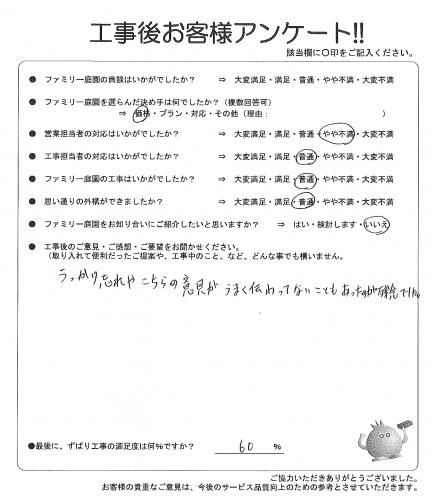 工事後お客様アンケート!!
該当欄に〇印をご記入ください。
● ファミリー庭園の商談はいかがでしたか? ⇒ 大変満足・満足・普通・やや不満・大変不満
● ファミリー庭園を選らんだ決め手は何でしたか?(複数回答可)
⇒ 価格・プラン・対応・その他(理由: )
● 営業担当者の対応はいかがでしたか? ⇒ 大変満足・満足・普通・やや不満・大変不満
● 工事担当者の対応はいかがでしたか? ⇒ 大変満足・満足・普通・やや不満・大変不満
● ファミリー庭園の工事はいかがでしたか? ⇒ 大変満足・満足・普通・やや不満・大変不満
● 思い通りの外構ができましたか? ⇒ 大変満足・満足・普通・やや不満・大変不満
● ファミリー庭園をお知り合いにご紹介したいと思いますか? ⇒ はい・検討します・いいえ
● 工事後のご意見・ご感想・ご要望をお聞かせください。
(取り入れて便利だったご提案や、工事中のこと、など、どんな事でも構いません。
うっかり忘れやこちらの意見がうまく伝わってないこともあったのが残念でした。
●最後に、ずばり工事の満足度は何%ですか? 60 %
ご協力いただきありがとうございました。
お客様の貴重なご意見は、今後のサービス品質向上のための参考とさせていただきます。